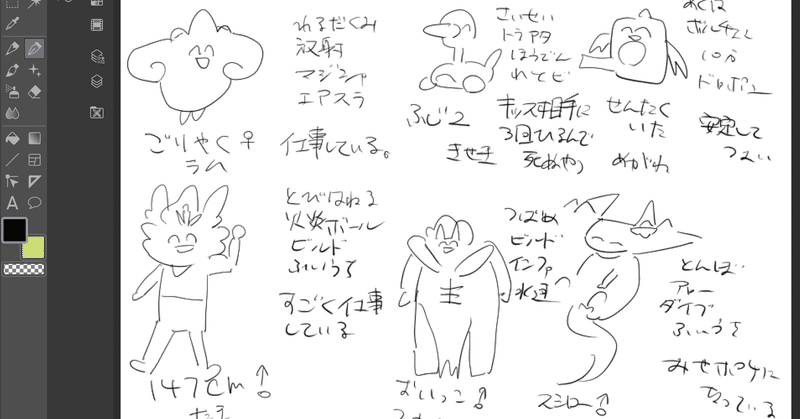 わるだくみ
放射
マジシャ
エアスラ
ごりやく♀
ラム
仕事している。
さいせい
トライアタ
ほうでん
れてビ
ふじ2
きせき
キッス相手に
3回ひるんで
死ぬやつ
ボルチェン
ドッポン
せんたく
いた
めがね
安定して
つよい
とびはねる
火炎ボール
ビルド
ふいうち
すごく仕事
している
147cm♂
つばめ
ビルド
インファ
水通
おいっこ♂
とんぼ
アレー
ダイブ
ふいうち
みせポケに
なっている
スシロー♂
A